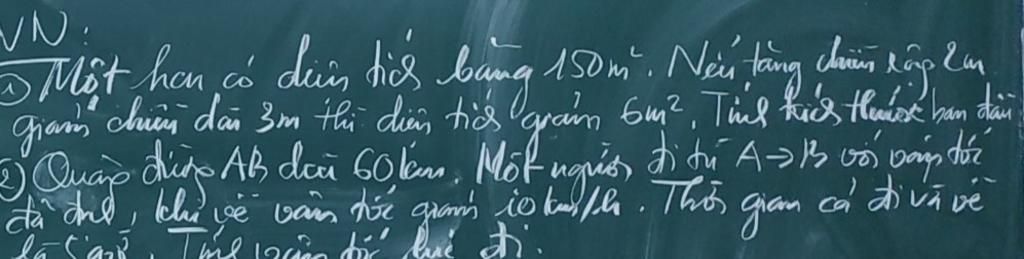 VN:
1) Một hcn có diện tích bằng 150m². Nếu tăng chiều rộng 2m
giảm chiều dài 3m thì diện tích giảm 6m². Tính kích thước ban đầu
2) Quãng đường AB dài 60km. Một người đi từ A→B với vận tốc
đã định, khi về vận tốc giảm 10km/h. Thời gian cả đi và về
là giờ. Tính vận tốc lúc đi.